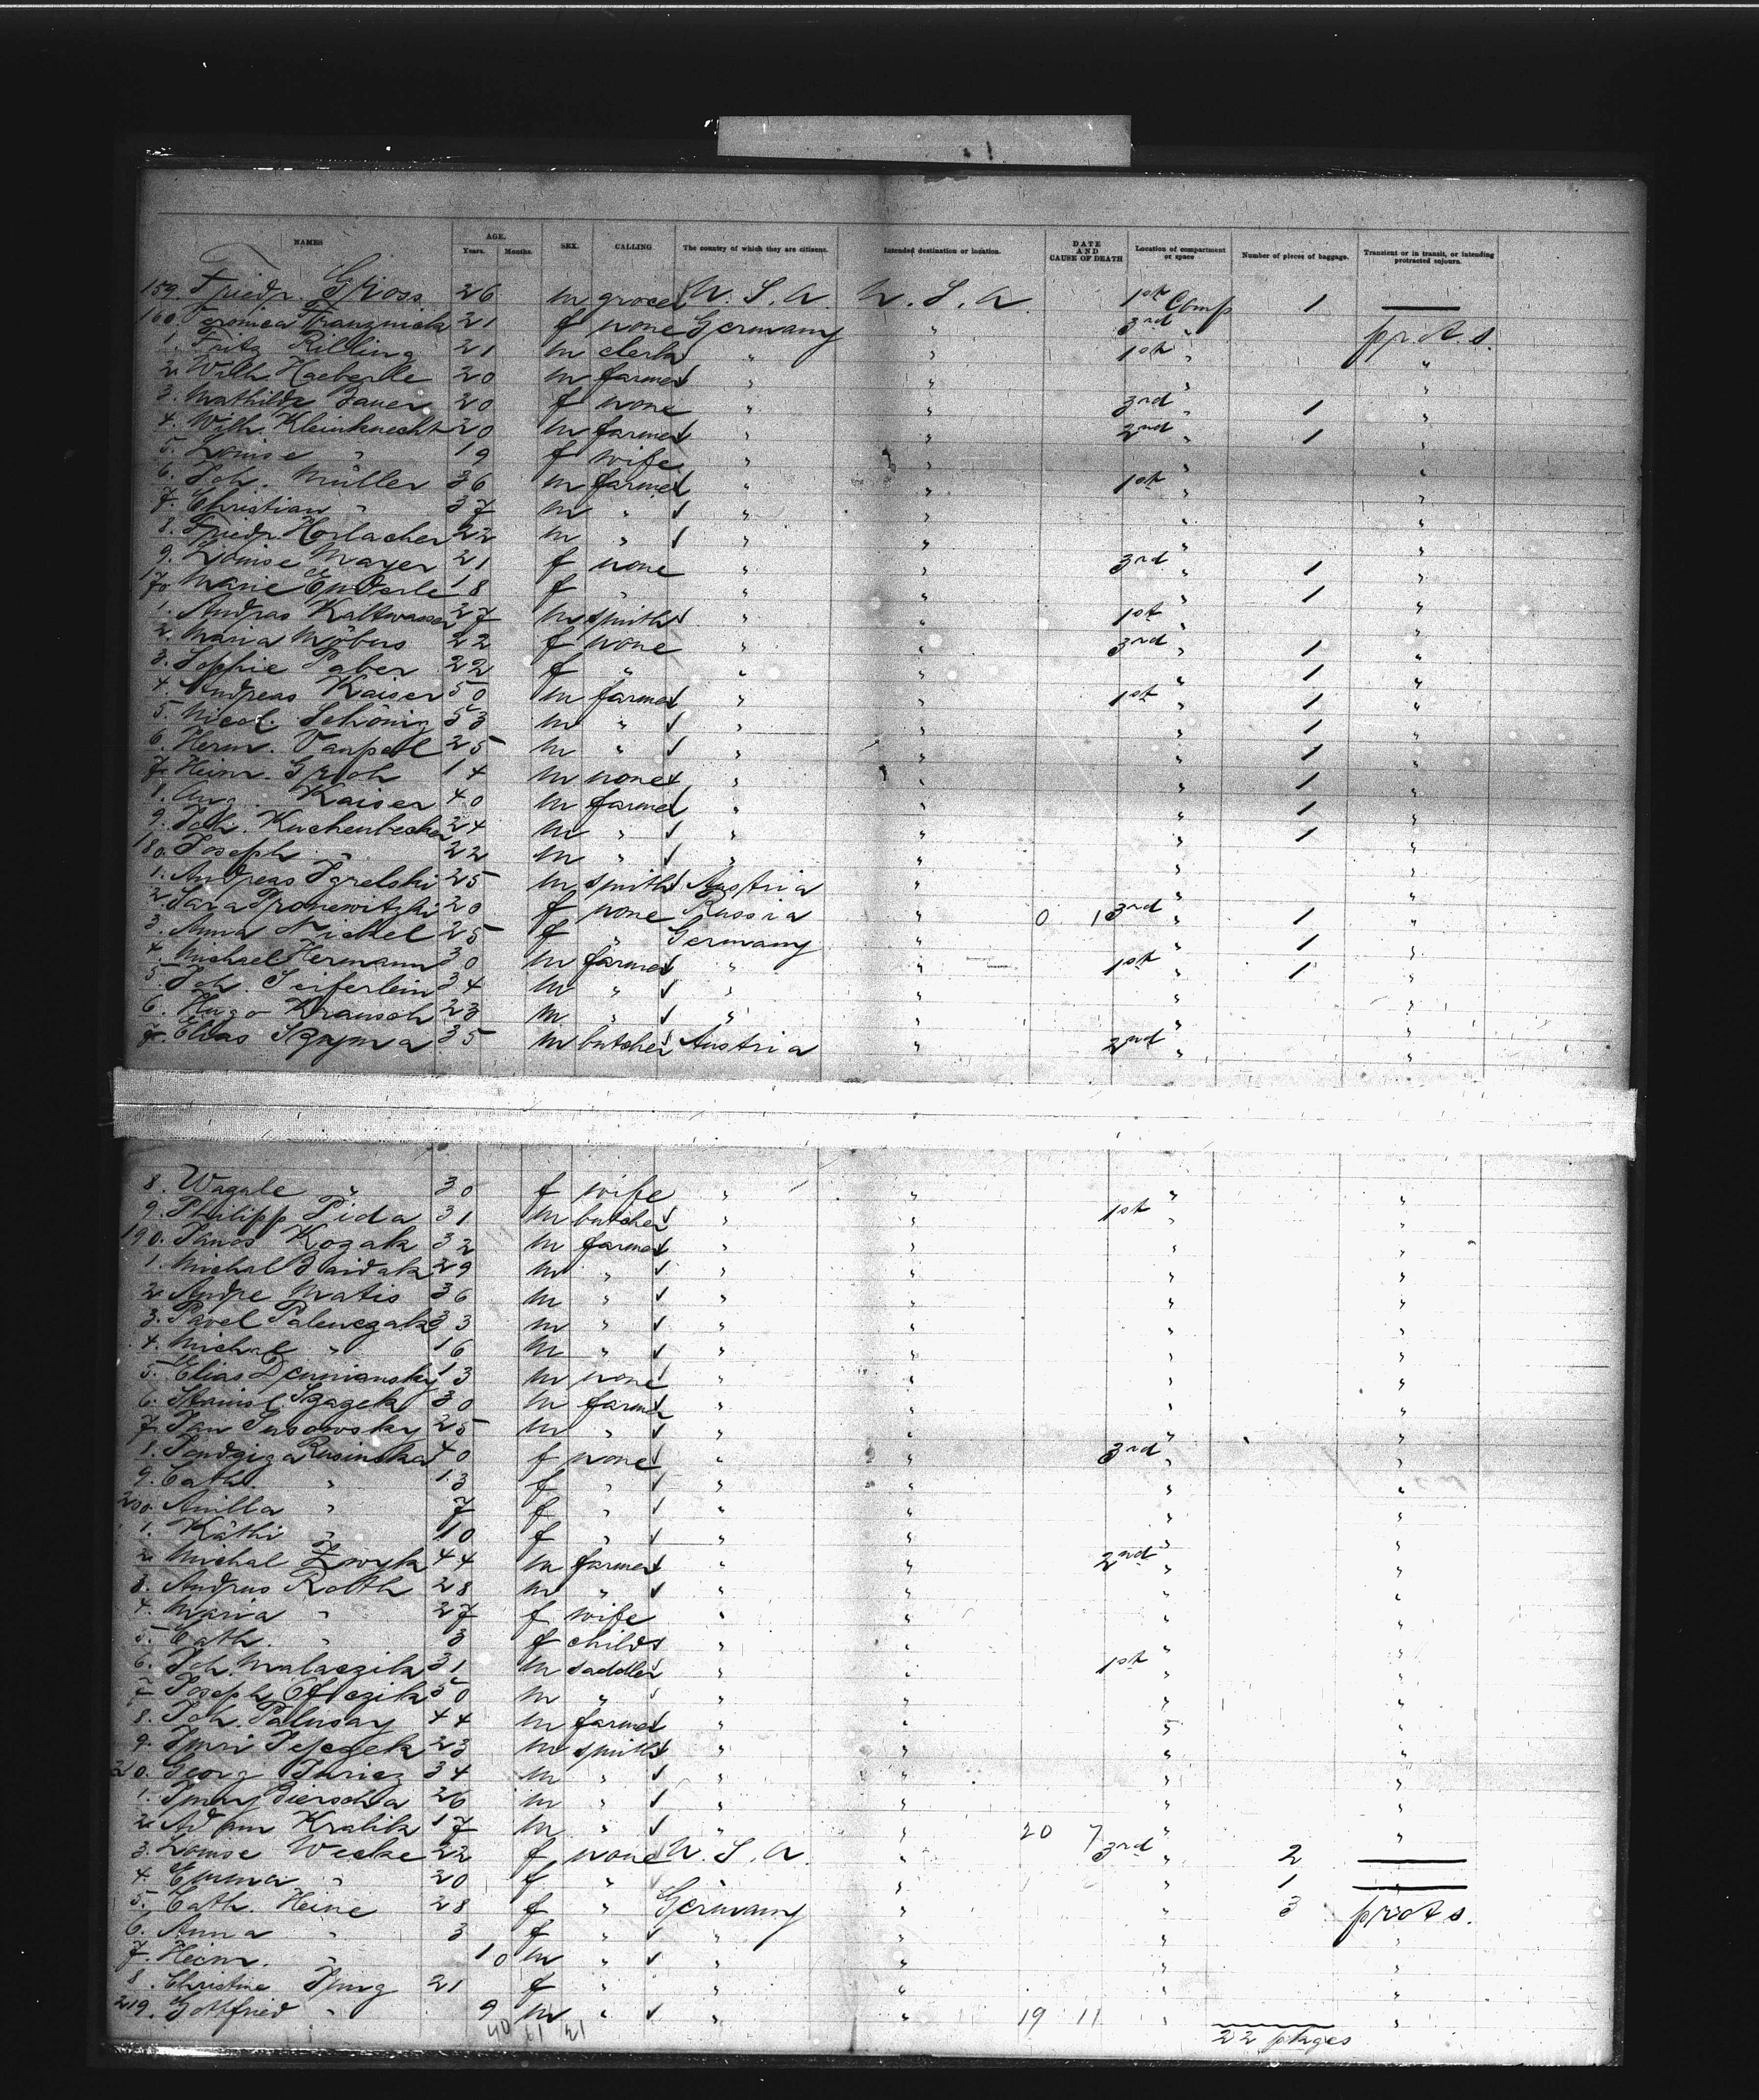 NAMES AGE. Years. Months. SEX. CALLING The country of which they are citizens. Intended destination or location. DATE AND CAUSE OF DEATH Location of compartment or space Number of pieces of baggage. Transient or in transit, or intending protracted sojourn.
159. Friedr. Gross 26 m grocer U. S. A. U. S. A. 1st Comp 1 —
160. Franznick 21 f none Germany " 3rd " pr. st. s.
1. Fritz Rilling 21 m clerk " " 1st " "
2. Wilh Haeberle 20 m farmer " " " "
3. Mathilde Bauer 20 f none " " 3rd " 1 "
4. Wilh. Kleinknecht 20 m farmer " " 2nd " 1 "
5. Louise " 19 f wife " " " "
6. Joh. Müller 36 m farmer " " 1st " "
7. Christian " 37 m " " " " "
8. Friedr. Horlacher 22 m " " " " "
9. Louise Mayer 21 f none " " 3rd " 1 "
170 Marie Enderle 18 f " " " " 1 "
1. Andras Kaltwasser 27 m smith " " 1st " "
2. Maria Möbus 22 f none " " 3rd " 1 "
3. Sophie Faber 22 f " " " " 1 "
4. Andreas Kaiser 50 m farmer " " 1st " 1 "
5. Nicol. Schönig 53 m " " " " 1 "
6. Herm. Vaupel 25 m " " " " 1 "
7. Heinr. Groh 14 m none " " " 1 "
8. Aug. Kaiser 40 m farmer " " " 1 "
9. Joh. Kuchenbecker 24 m " " " " 1 "
180. Joseph " 22 m " " " " "
1. Andreas 25 m smith Austria " " "
2. Sara 20 f none Russia " 0 1 3rd " 1 "
3. Anna Nickel 25 f " Germany " " 1 "
4. Michael Hermann 30 m farmer " " 1st " 1 "
5. Joh. Seiferlein 34 m " " " " "
6. Hugo Krausch 23 m " " " " "
7. Elias Szryma 35 m butcher Austria " 2nd " "
8. " 30 f wife " " " "
9. Philipp Pida 31 m butcher " " 1st " "
190. Janos Kozak 32 m farmer " " " "
1. Michal Baidak 29 m " " " " "
2. Andre Matis 36 m " " " " "
3. Pavel Palenczak 33 m " " " " "
4. Michal " 16 m " " " " "
5. Elias Demiansky 13 m none " " " "
6. 30 m farmer " " " "
7. Jan Sasowsky 25 m " " " " "
8. Rusinska 40 f none " " 3rd " "
9. Cath. " 13 f " " " " "
200. " 7 f " " " " "
1. Käthi " 10 f " " " " "
2. Michal Zwyk 44 m farmer " " 2nd " "
3. Andras Roth 28 m " " " " "
4. Maria " 27 f wife " " " "
5. Cath. " 3 f child " " " "
6. Joh. Malaczik 31 m saddler " " 1st " "
7. Joseph 50 m " " " " "
8. Joh. Palusay 44 m farmer " " " "
9. 23 m smith " " " "
20. Georg Juricz 34 m " " " " "
1. 26 m " " " " "
2. Adam Kralik 17 m " " " 20 7 " "
3. Louise Wecke 22 f none U. S. A. " 3rd " 2 —
4. Emma " 20 f " " " 1 —
5. Cath. Heine 28 f " Germany " " 3 pr. st. s.
6. Anna " 3 f " " " " "
7. Heinr. " 10 m " " " " "
8. Christine Jung 21 f " " " " "
219. Gottfried " 9 m " " " 19 11 " "
22 pkges